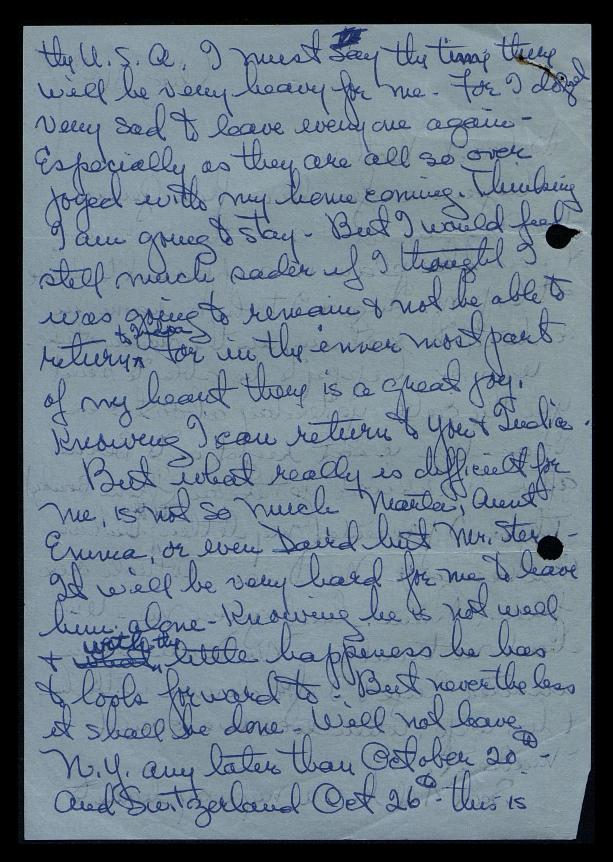 the U. S. A. I must say the time there
will be very heavy for me - For I do feel
very sad to leave everyone again -
Especially as they are all so over
joyed with my home coming. Thinking
I am going to stay - But I would feel
still much sader if I thought I
was going to remain & not be able to
return to India for in the inner most part
of my heart there is a great joy.
Knowing I can return to you & India.
But what really is difficult for
me, is not so much Marta, Aunt
Emma, or even David but Mr. Ster -
It will be very hard for me to leave
him alone - Knowing he is not well
& with the little happeness he has
to look forward to - But nevertheless
it shall be done - Will not leave
N.Y. any later than October 20th -
and Switzerland Oct 26th - this is